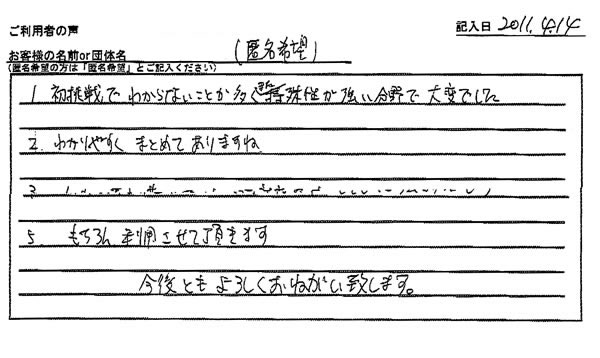 ご利用者の声
記入日 2011.4.14
お客様の名前or団体名 (匿名希望)
(匿名希望の方は「匿名希望」とご記入ください)
1 初挑戦で わからないことが多く 特殊性が強い分野で 大変でした
2. わかりやすく まとめてありますね
3
5. もちろん 利用させて頂きます
今後とも よろしくおねがい致します。